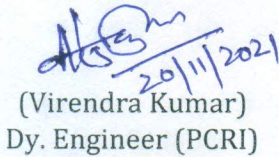 20/11/2021
(Virendra Kumar)
Dy. Engineer (PCRI)